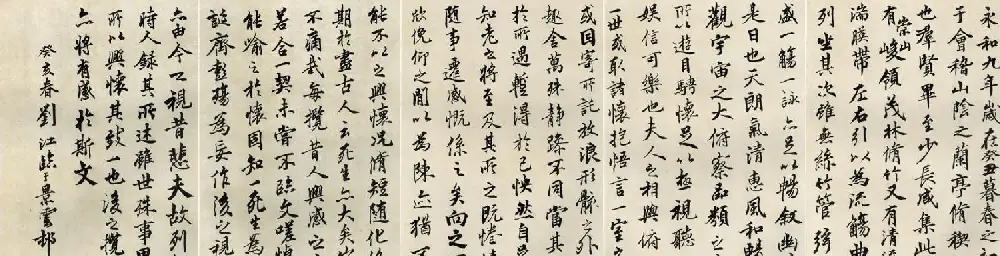 永和九年歲在癸丑暮春之初
于會稽山陰之蘭亭脩稧
也羣賢畢至少長咸集此
有崇山峻領茂林脩竹又有清流
湍暎帶左右引以為流觴曲
列坐其次雖無絲竹管弦
盛一觴一詠亦足以暢叙幽
是日也天朗氣清惠風和暢
觀宇宙之大俯察品類之
所以遊目騁懷足以極視聽
娛信可樂也夫人之相與俯
一世或取諸懷抱悟言一室之
或因寄所託放浪形骸之外
趣舍萬殊静躁不同當其
於所遇蹔得於己怏然自足
知老之將至及其所之既惓
隨事遷感慨係之矣向之
欣俛仰之閒以為陳迹猶不
能不以之興懷況脩短隨化
期於盡古人云死生亦大矣
不痛哉每攬昔人興感之
若合一契未嘗不臨文嗟悼
能喻之於懷固知一死生為
誕齊彭殤為妄作後之視
亦由今之視昔悲夫故列
時人録其所述雖世殊事異
所以興懷其致一也後之攬
亦將有感於斯文
癸亥春劉江臨于景雲邨